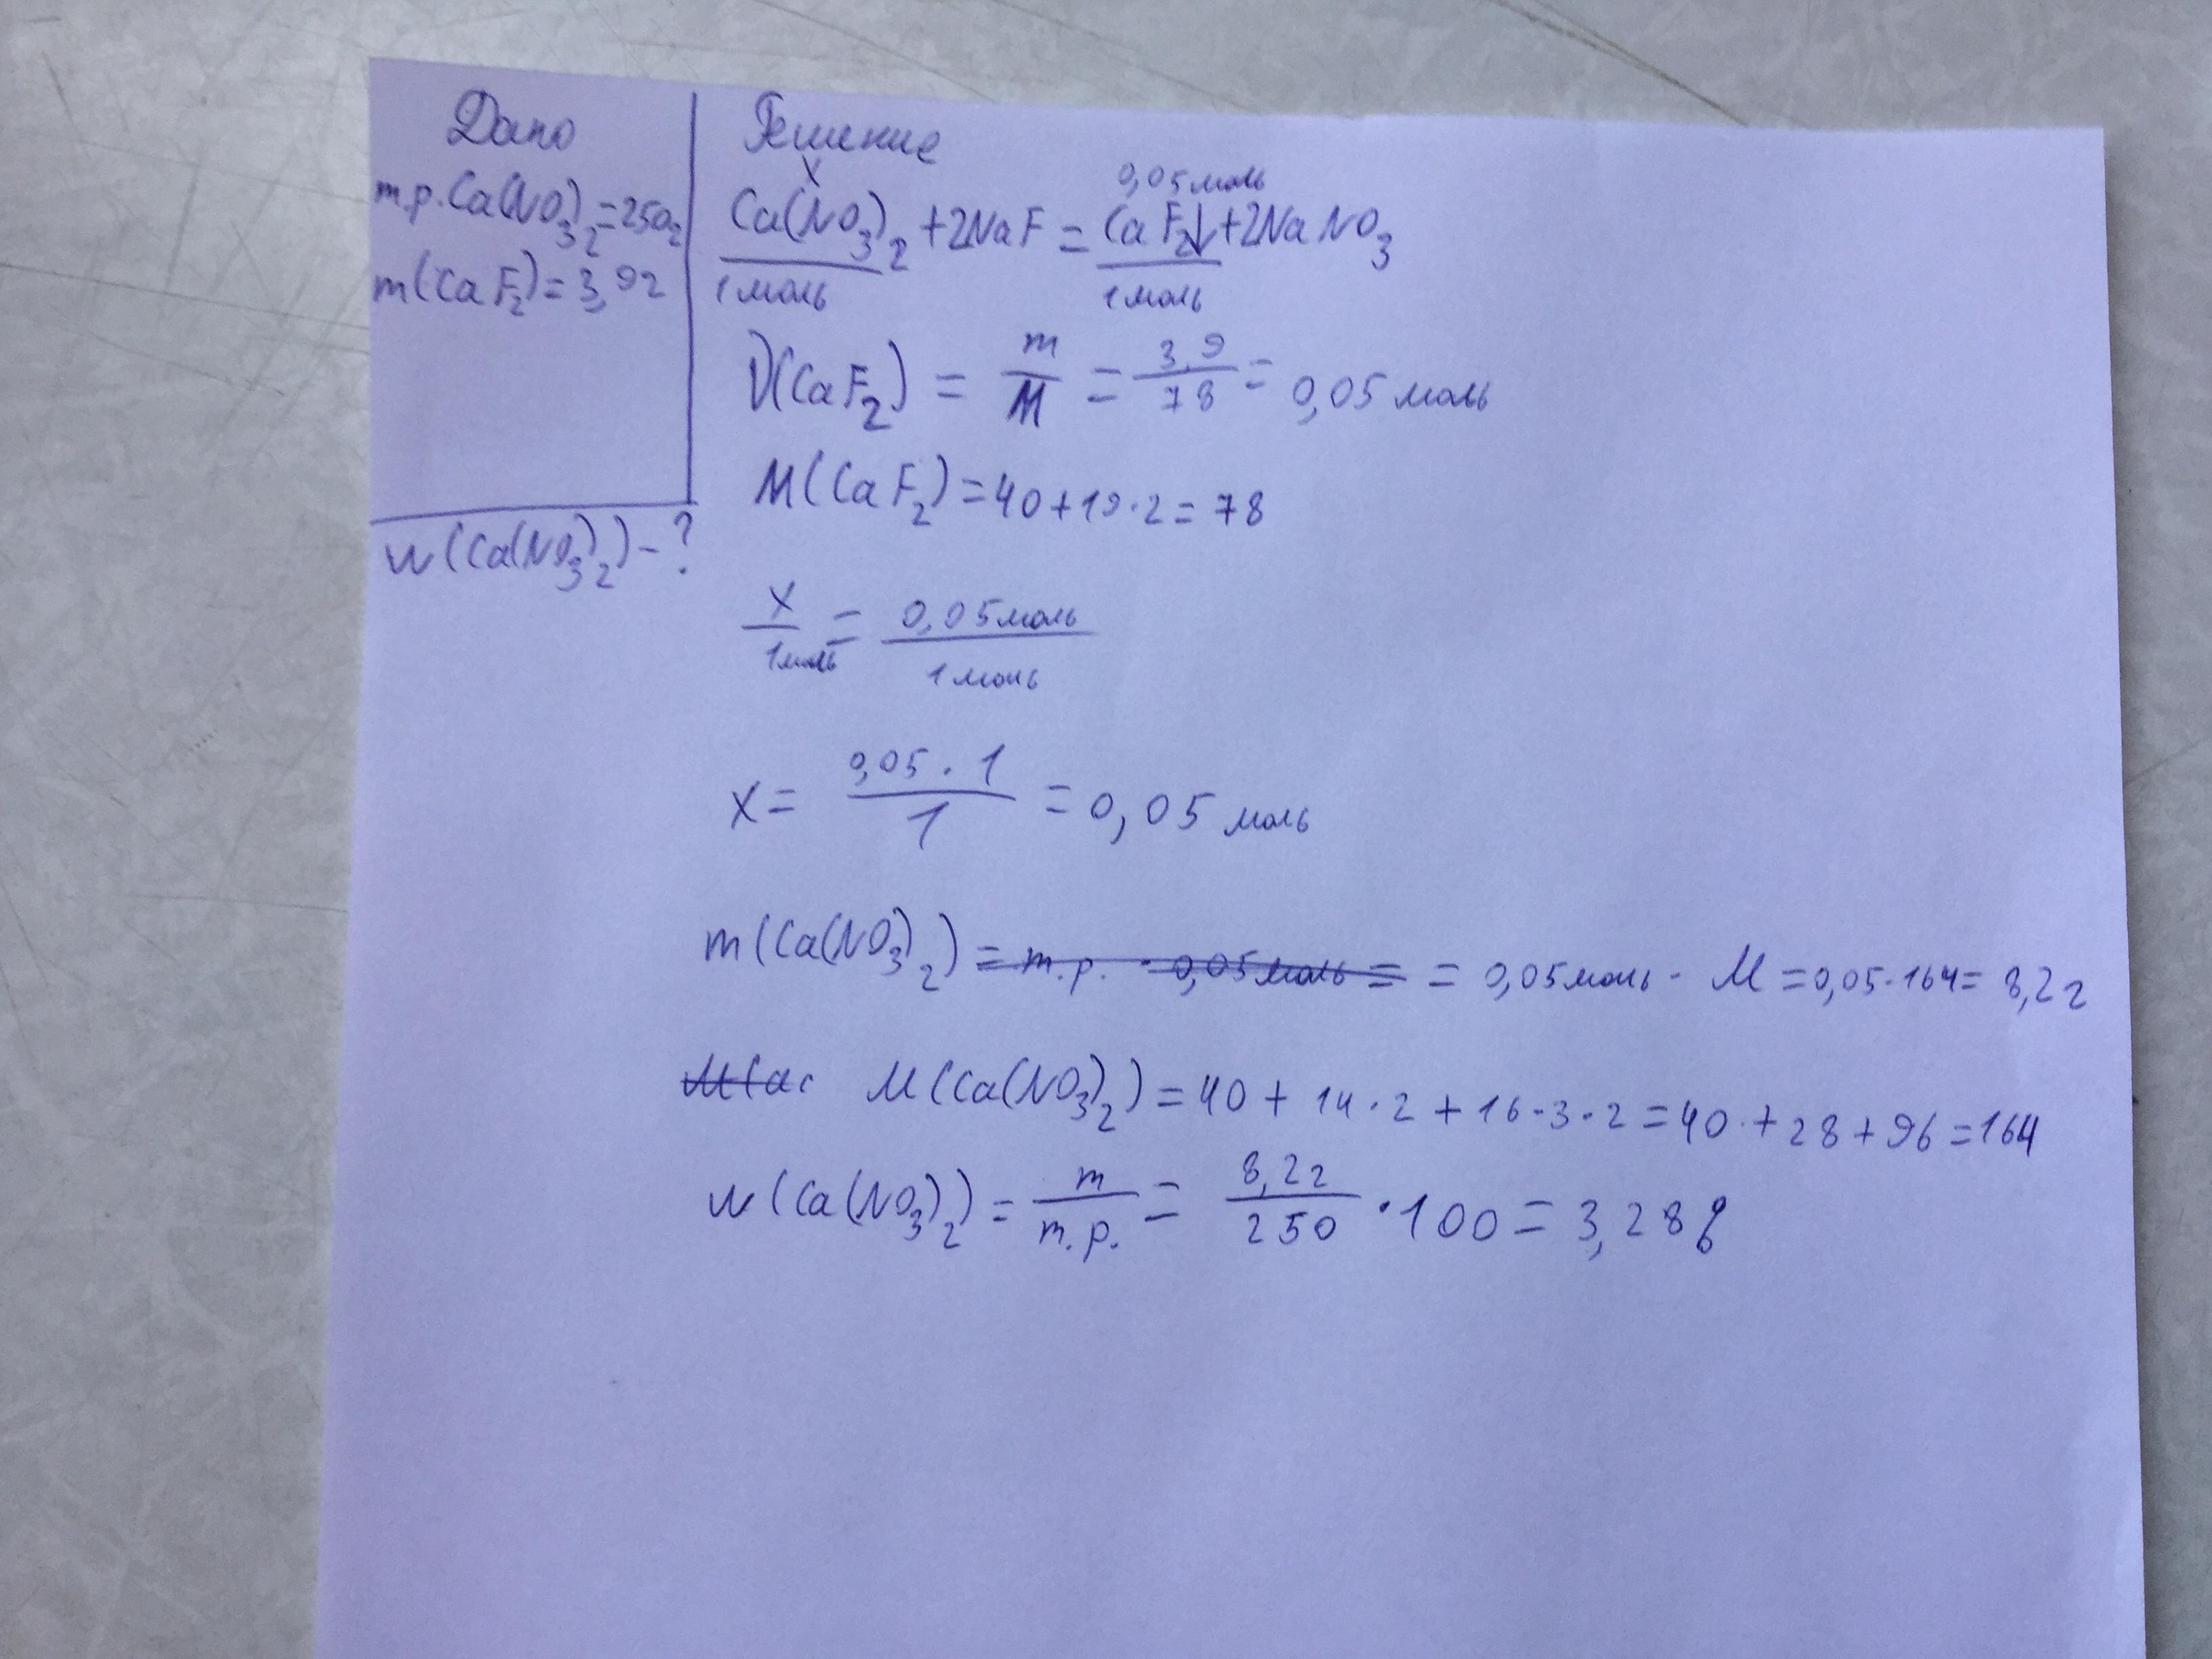 Дано
m.p. Ca(NO3)2=250г
m(CaF2)=3,9г
w(Ca(NO3)2)-?
Решение
x 0,05 моль
Ca(NO3)2+2NaF=CaF2↓+2NaNO3
1 моль 1 моль
ν(CaF2) = m/M = 3,9/78 = 0,05 моль
M(CaF2)=40+19·2=78
x/1моль = 0,05моль/1моль
x= 0,05·1/1 =0,05 моль
m(Ca(NO3)2)= m.p. · 0,05моль = = 0,05моль · M =0,05·164= 8,2г
M(Ca(NO3)2)=40+14·2+16·3·2=40+28+96=164
w(Ca(NO3)2)= m/m.p. = 8,2г/250 ·100=3,28%